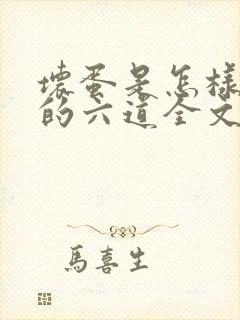 壞蛋是怎樣
的六道全文
馬喜生